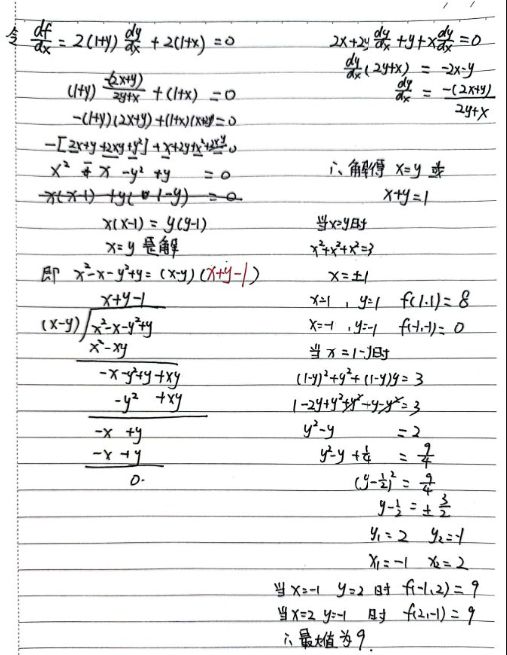 令 df/dx = 2(1+y) dy/dx + 2(1+x) = 0
(1+y) -(2x+y)/2y+x + (1+x) = 0
-(1+y)(2x+y)+(1+x)(x+2y)=0
-[2x+y+2xy+y²]+x+2y+x²+2xy=0
x² - x -y² +y = 0
x(x-1) + y(1-y) = 0
x(x-1) = y(y-1)
x=y 是解
即 x²-x-y²+y = (x-y)(x+y-1)
x+y-1
(x-y) x²-x-y²+y
x²-xy
-x-y²+y+xy
-y² +xy
-x +y
-x +y
0.
2x+2y dy/dx + y + x dy/dx = 0
dy/dx (2y+x) = -2x-y
dy/dx = -(2x+y)/2y+x
∴ 解得 x=y 或
x+y=1
当x=y时
x²+x²+x²=3
x=±1
x=1 , y=1 f(1,1)=8
x=-1 , y=-1 f(-1,-1)=0
当 x=1-y时
(1-y)²+y²+(1-y)y=3
1-2y+y²+y²+y-y²=3
y²-y =2
y²-y+1/4 = 9/4
(y-1/2)² = 9/4
y-1/2 = ± 3/2
y₁=2 y₂=-1
x₁=-1 x₂=2
当x=-1 y=2 时 f(-1,2)=9
当x=2 y=-1 时 f(2,-1)=9
∴ 最大值为9.